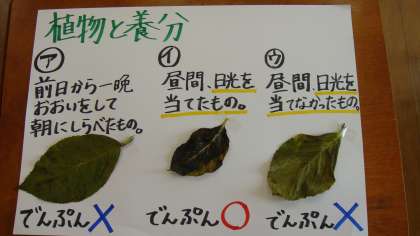 植物と養分
㋐
前日から一晩
おおいをして
朝にしらべたもの。
でんぷん×
㋑
昼間、日光を
当てたもの。
でんぷん○
㋒
昼間、日光を
当てなかったもの。
でんぷん×